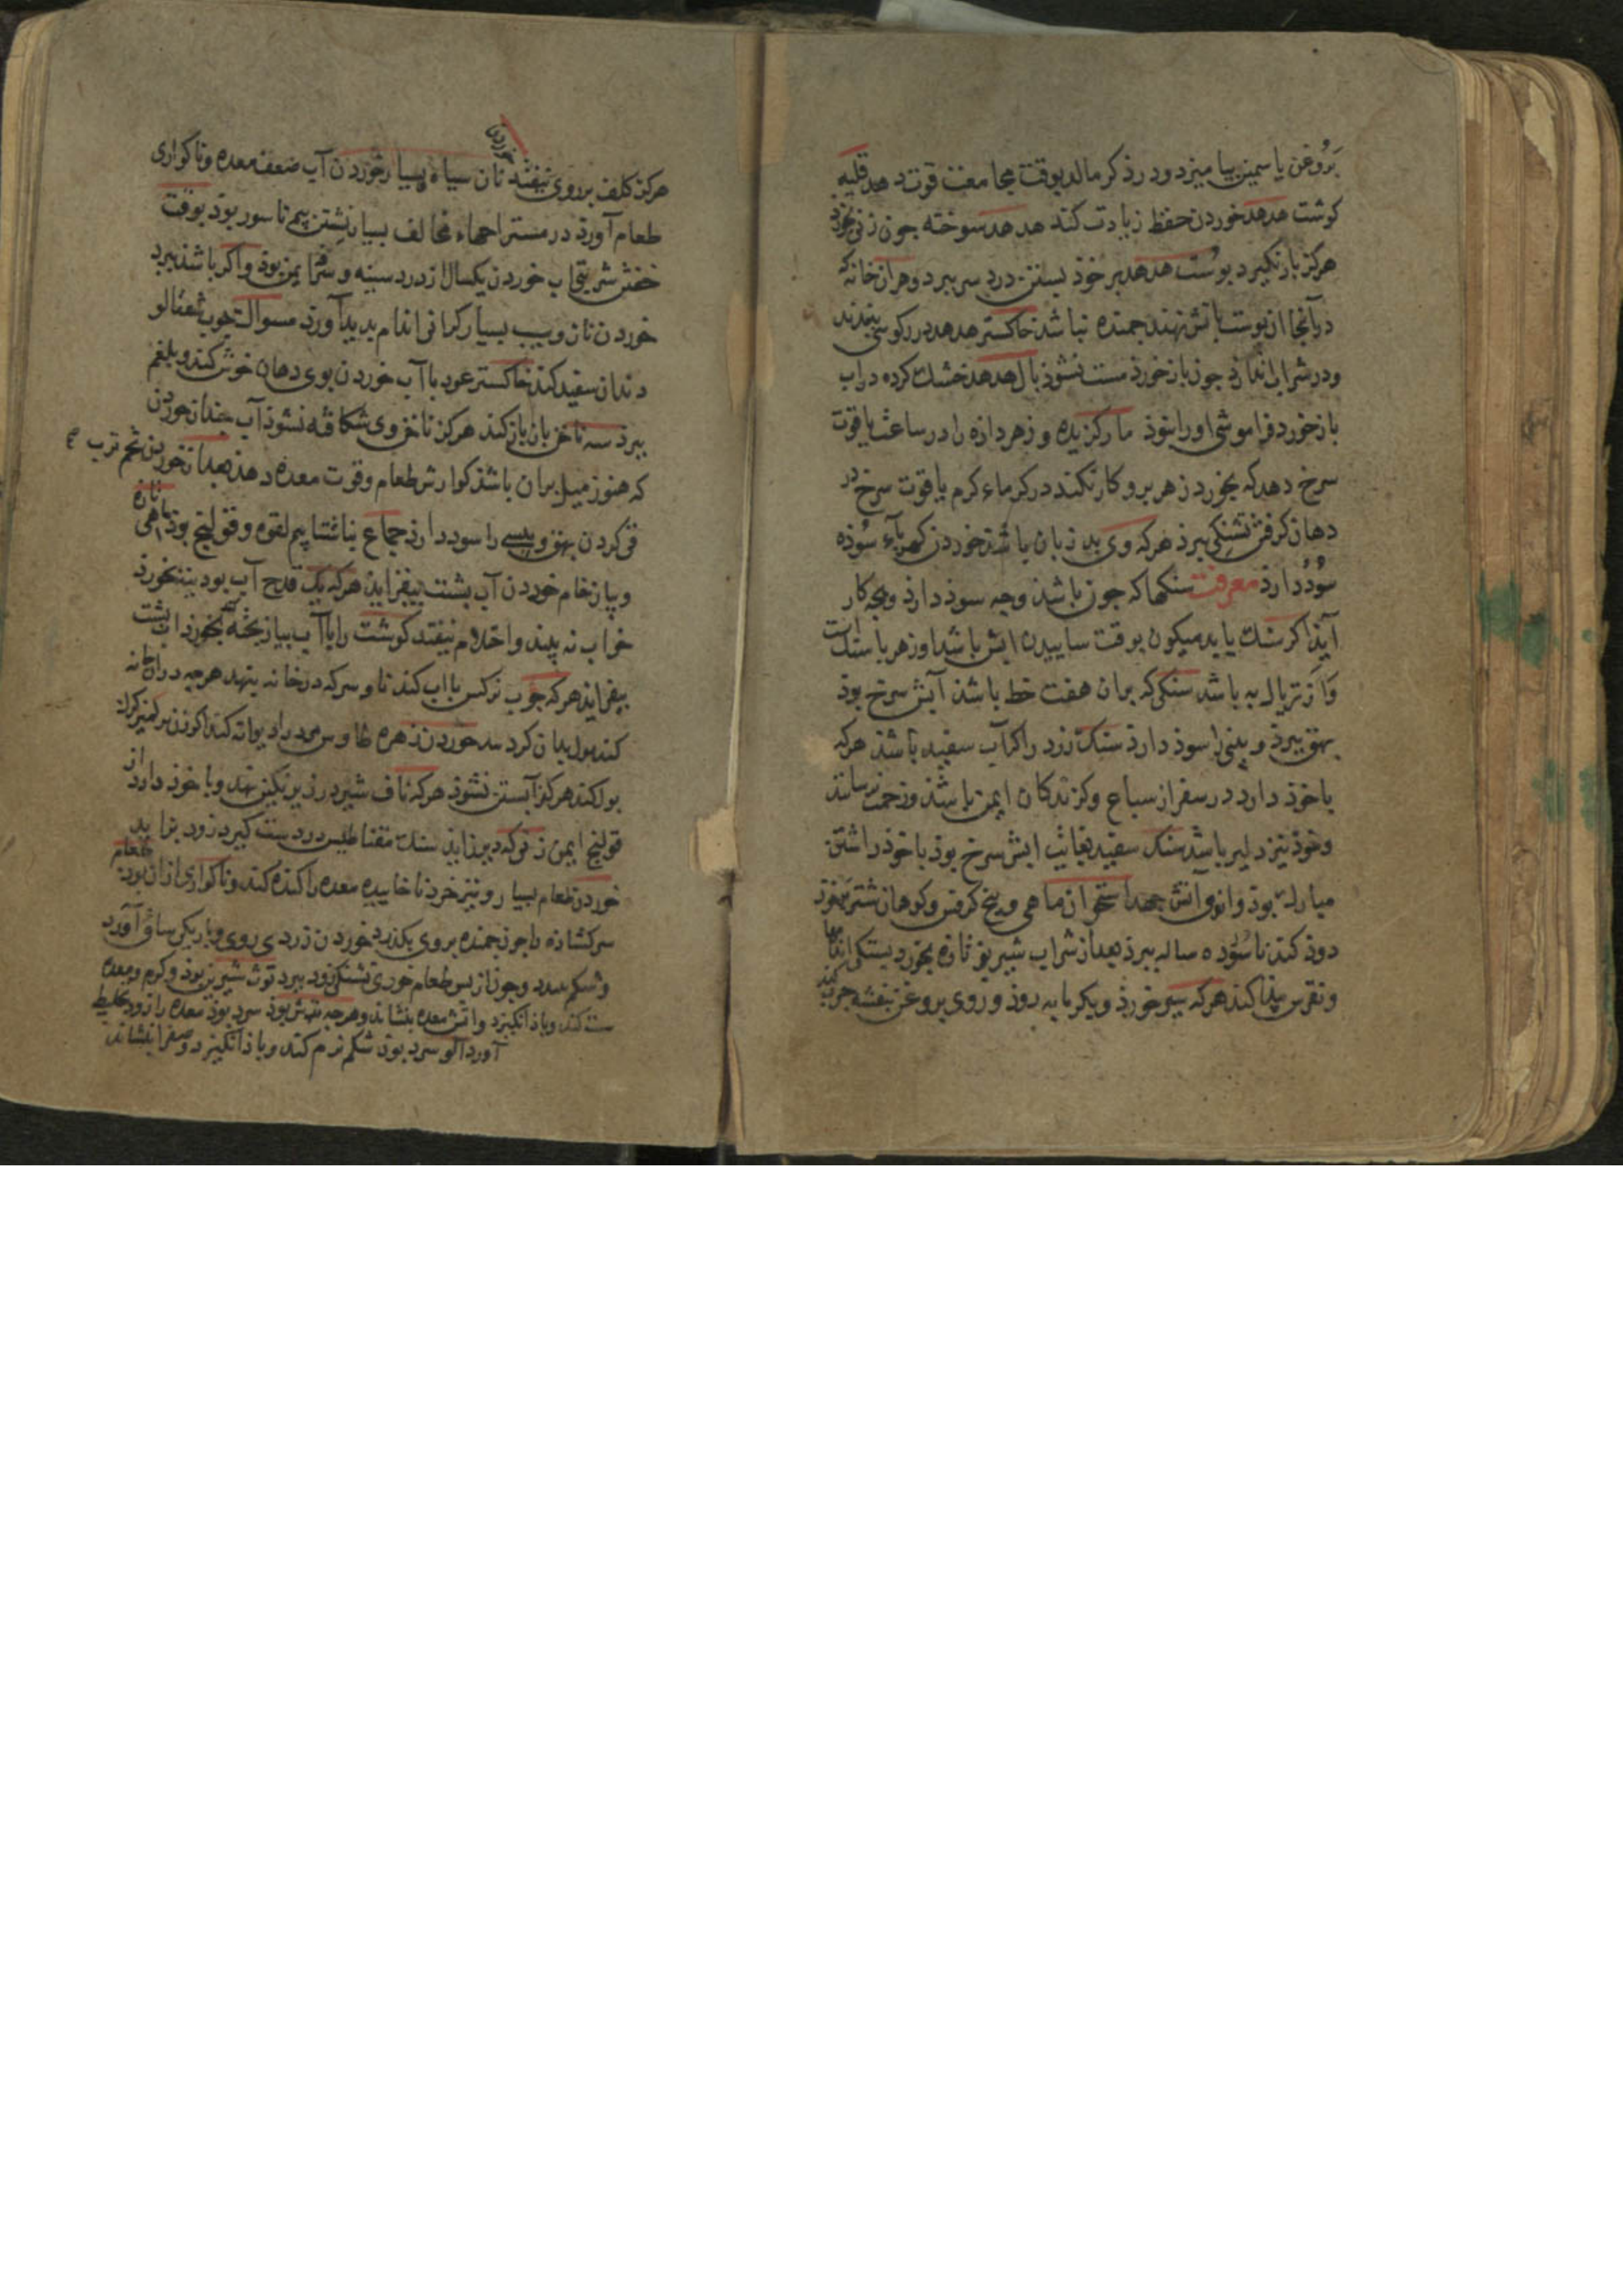 بَرُوغن یاسمین بیامیزد و در ذکر مالد بوقت مجامعت قوت دهد قلیه
کوشت هدهد خوردن حفظ زیادت کند هدهد سوخته جون زنی بخورد
هرکز بار نکیرد پوست هدهد بر خوذ بستن درد سر ببرد و هران خانه که
درآنجا ان پوست باتش نهند جمنده نباشد خاکستر هدهد در رکوی بندند
و در شراب اندازند جون باز خورد مست نشوذ بال هدهد خشک کرده در اب
باز خورد فراموشی اورا نبوذ مار کزیده و زهر دازه را در ساعت یاقوت
سرخ دهد که بخورد زهر برو کار نکند در کرماء کرم یاقوت سرخ در
دهان کرفتن تشنکی ببرذ هرکه وی بد زبان باشذ خوردن کهرباء سُوذه
سُوذ دارذ معرفت سنکها که جون باشذ و جه سوذ دارذ و بجه کار
آیذ اکر سنک باید میکون بوقت ساییدن ابش باشد او زهر با سنک است
و از تریاک به باشد سنکی که بران هفت خط باشذ آبش سرخ بوذ
بهق ببرذ و بینی را سوذ دارذ سنک زرد را کر آب سفید باشذ هرکه
با خوذ دارد در سفر از سباع و کزندکان ایمن باشذ و زحمت نرسانند
و خوذ نیز دلیر باشد سنک سفید بغایت ابش سرخ بوذ با خوذ داشتن
مبارک بوذ استخوان ماهی و بیخ کرفس و کوهان شتر بخوذ
دوذ کند ناسُور ده ساله ببرذ بعد از شراب شیر یوز تازه بخورد بستکی اندامها
و نقرس پیدا کند هرکه سیر خورذ و بکرمابه روذ و روی بروغن بنفشه جرب کند
هرکز کلف بر روی نیفتد نان سیاه بسیار خوردن آب ضعف معده و ناکواری
خوردن
طعام آورذ در مستراحهاء مخالف بسیار نشستن بیم ناسور بوذ بوقت
خفتن شربتی اب خوردن یکسال از درد سینه و سرفه ایمن بوذ و اکر باشذ ببرد
خوردن نان و سیب بسیار کرانی اندام بدید آورذ مسواک جوب شفتالو
دندان سفید کند خاکستر عود با آب خوردن بوی دهان خوش کند و بلغم
ببرذ سه ناخن بان باز کند هرکز ناخن وی شکافه نشوذ آب جندان خوردن
که هنوز میل بران باشذ کوارش طعام و قوت معده دهد بعد از خوردن تخم ترب
قی کردن بهق و پیسی را سود دارذ جماع بناشتا بیم لقوه و قولنج بوذ ماهی تازه
و پیاز خام خوردن آب پشت بیفزایذ هرکه یک قدح آب بود بینه بخورذ
خواب نه بیند و احتلام نیفتد کوشت را با آب پیاز پخته بخورد اب پشت
بیفزاید هرکه جوب نرکس با اب کند تا و سرکه در خانه بنهد هرجه در ان خانه
خوردن زهره طاوس مرد را دیوانه کند اکر زن بر کمیز کرک
بول کند هرکز آبستن نشوذ هرکه ناف شیر در زیر نکین نهد و با خوذ دارذ از
قولنج ایمن زنی که دیر زاید سنک مغناطیس در دست کیرد زود بزاید
خوردن طعام بسیار و نیز خرد ناخاییده معده را کنده کند و ناکواری از ان بوذ طعام
سرکشاذه جون جمنده بروی بکذرد خوردن زردی روی و باریکی ساق آورد
و شکم ببندد و جون از پس طعام خوری تشنکی زود ببرد توث شیرین بوذ و کرم و معده
سست کند و باذ انکیزد و اتش معده بنشاند و هرجه ترش بوذ سرد بوذ معده را زود بخلیط
آورد الو سرد بود شکم نرم کند و باذ انکیزد و صفرا بنشاند